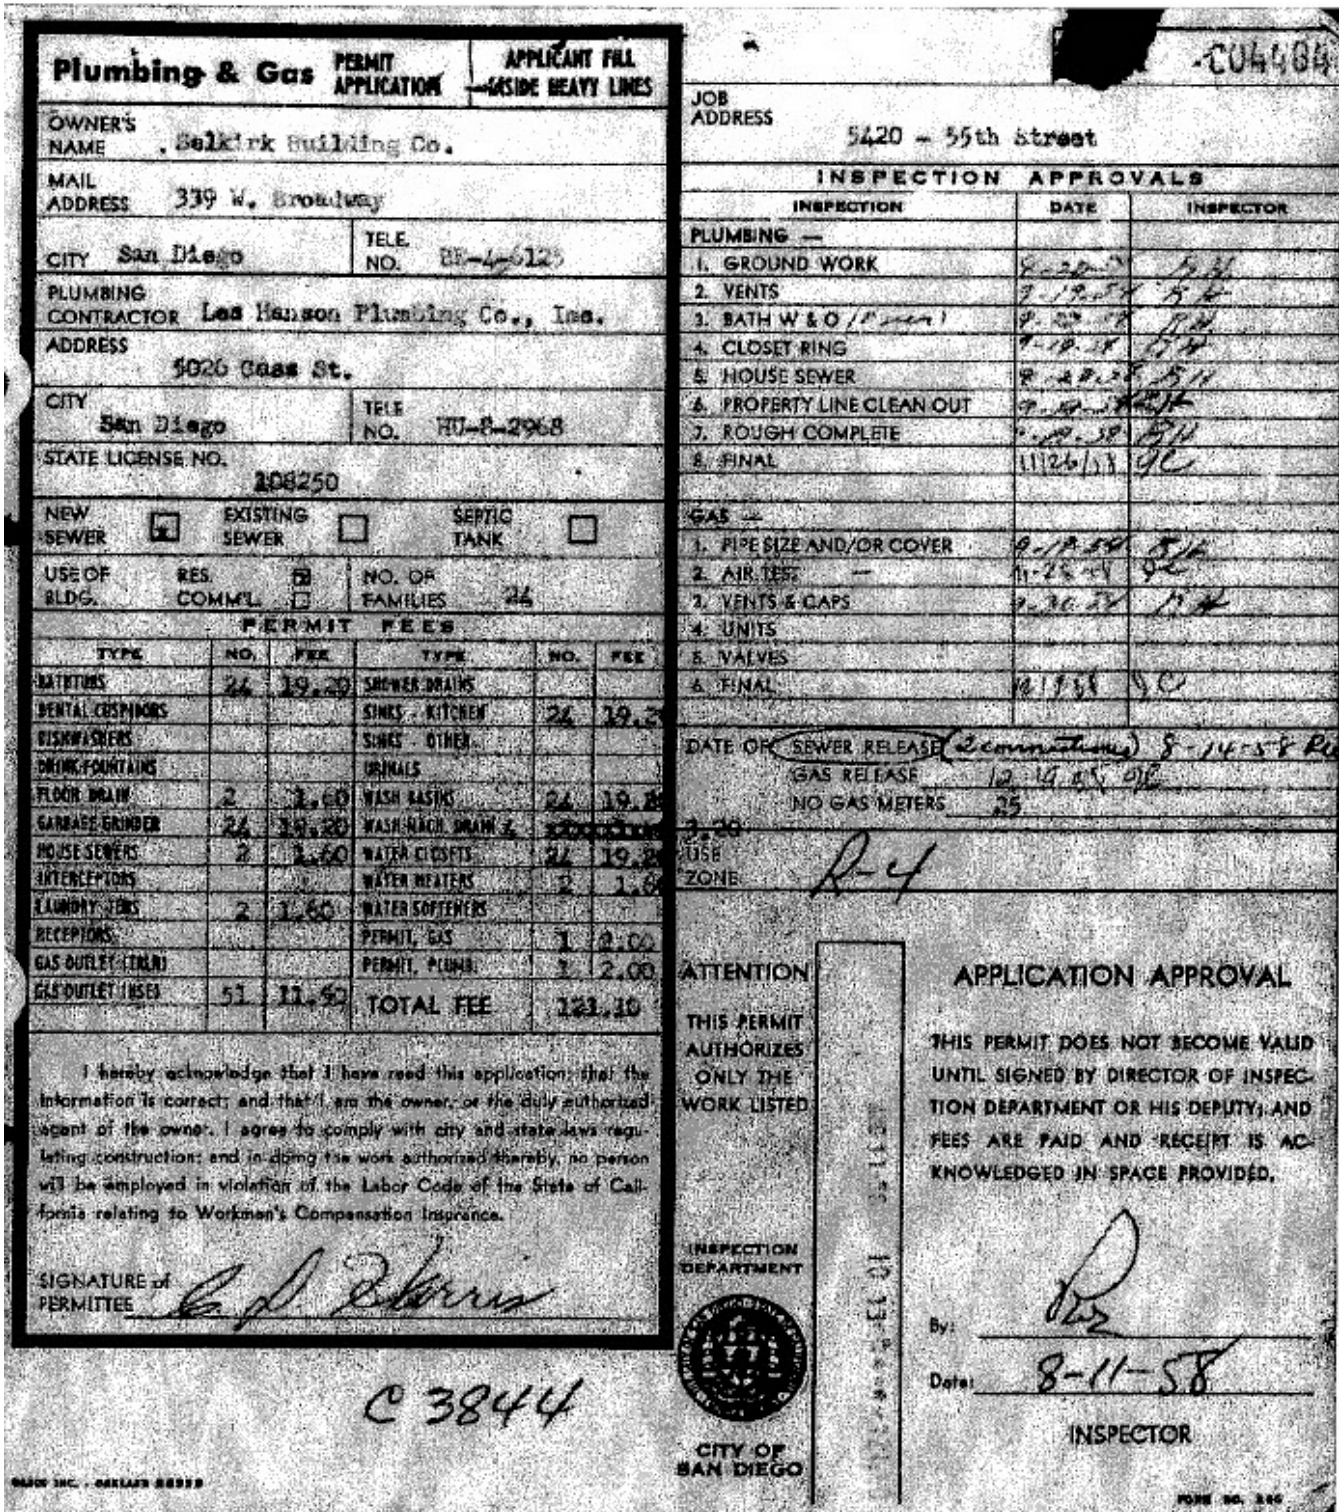 Plumbing & Gas PERMIT APPLICATION
APPLICANT FILL INSIDE HEAVY LINES
OWNER'S NAME Selkirk Building Co.
MAIL ADDRESS 339 W. Broadway
CITY San Diego TELE. NO. BE-4-6125
PLUMBING CONTRACTOR Les Hanson Plumbing Co., Inc.
ADDRESS 5026 Cass St.
CITY San Diego TELE. NO. HU-8-2968
STATE LICENSE NO. 108250
NEW SEWER EXISTING SEWER SEPTIC TANK
USE OF BLDG. RES. COMM'L. NO. OF FAMILIES 24
PERMIT FEES
TYPE NO. FEE TYPE NO. FEE
BATHTUBS 24 19.20 SHOWER DRAINS
DENTAL CUSPIDORS SINKS - KITCHEN 24 19.20
DISHWASHERS SINKS - OTHER
DRINK FOUNTAINS URINALS
FLOOR DRAIN 2 1.60 WASH BASINS 24
GARBAGE GRINDER 24 19.20 WASH MACH. DRAIN 4 3.20
HOUSE SEWERS 2 1.60 WATER CLOSETS 24 19.20
INTERCEPTORS WATER HEATERS 2 1.60
LAUNDRY TUBS 2 1.60 WATER SOFTENERS
RECEPTORS PERMIT, GAS 1 2.00
GAS OUTLET (TRLR) PERMIT, PLUMB. 1 2.00
GAS OUTLET (HSE) 51 TOTAL FEE 121.10
I hereby acknowledge that I have read this application; that the
information is correct; and that I am the owner, or the duly authorized
agent of the owner. I agree to comply with city and state laws regu-
lating construction; and in doing the work authorized thereby, no person
will be employed in violation of the Labor Code of the State of Cali-
fornia relating to Workmen's Compensation Insurance.
SIGNATURE of PERMITTEE
C 3844
C04484
JOB ADDRESS
5420 - 55th Street
INSPECTION APPROVALS
INSPECTION DATE INSPECTOR
PLUMBING —
1. GROUND WORK
2. VENTS
3. BATH W & O
4. CLOSET RING
5. HOUSE SEWER
6. PROPERTY LINE CLEAN OUT
7. ROUGH COMPLETE
8. FINAL 11/26/58 JC
GAS —
1. PIPE SIZE AND/OR COVER
2. AIR TEST
3. VENTS & CAPS
4. UNITS
5. VALVES
6. FINAL
DATE OF SEWER RELEASE (2 connections) 8-14-58
GAS RELEASE
NO GAS METERS 25
USE ZONE R-4
ATTENTION
THIS PERMIT
AUTHORIZES
ONLY THE
WORK LISTED
INSPECTION
DEPARTMENT
CITY OF
SAN DIEGO
APPLICATION APPROVAL
THIS PERMIT DOES NOT BECOME VALID
UNTIL SIGNED BY DIRECTOR OF INSPEC-
TION DEPARTMENT OR HIS DEPUTY; AND
FEES ARE PAID AND RECEIPT IS AC-
KNOWLEDGED IN SPACE PROVIDED.
By:
Date: 8-11-58
INSPECTOR